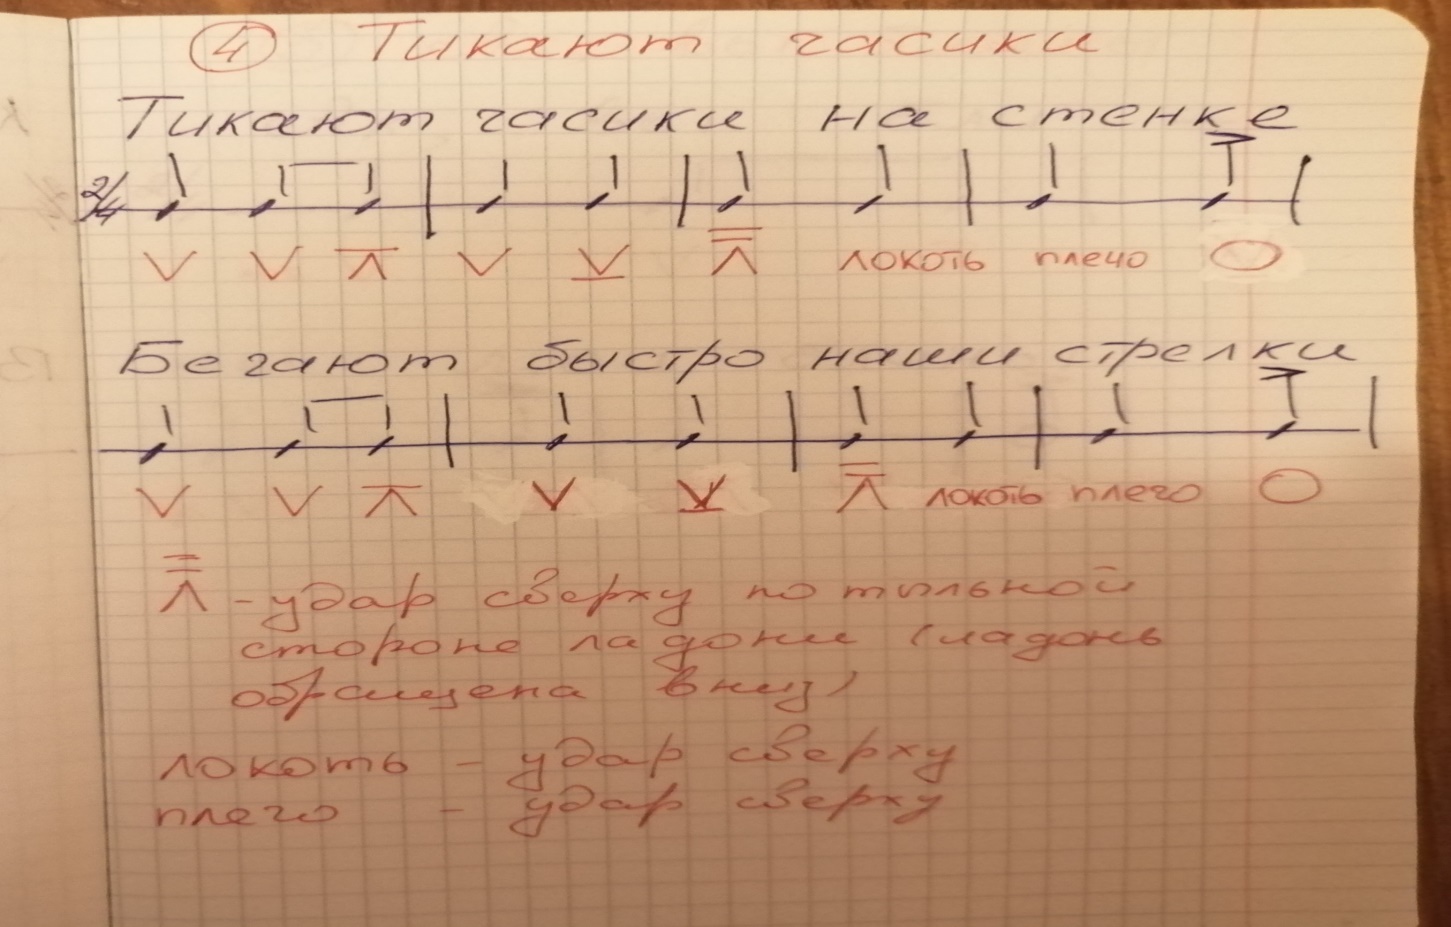 4 Тикают часики
Тикают часики на стенке
2/4
локоть плечо
Бегают быстро наши стрелки
локоть плечо
- удар сверху по тыльной
стороне ладони (ладонь
обращена вниз)
локоть - удар сверху
плечо - удар сверху